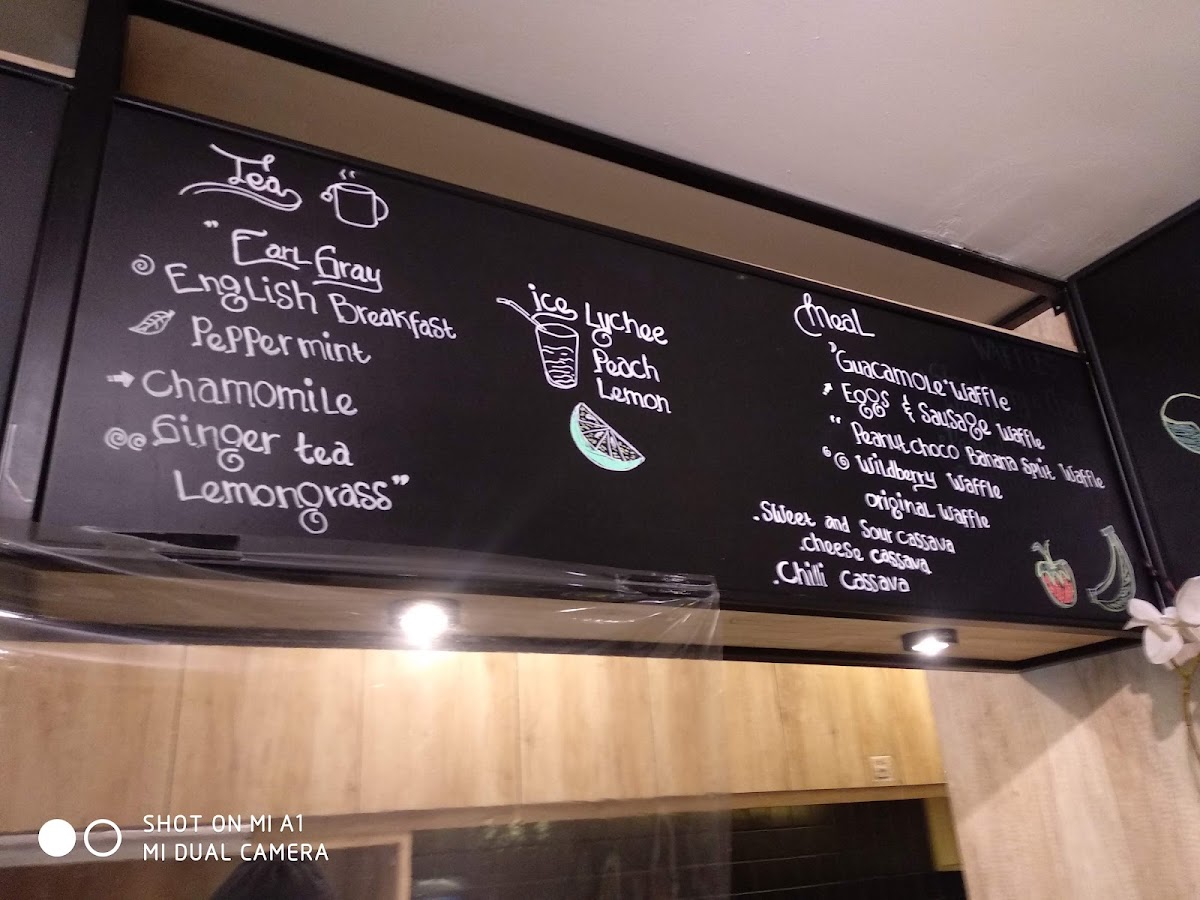 Tea
"Earl Gray
English Breakfast
Peppermint
Chamomile
Ginger tea
Lemongrass"
ice Lychee
Peach
Lemon
Meal
'Guacamole' Waffle
Eggs & Sausage Waffle
"Peanut choco Banana Split Waffle
Wildberry Waffle
original Waffle
.Sweet and Sour cassava
.cheese cassava
.Chilli cassava
SHOT ON MI A1
MI DUAL CAMERA